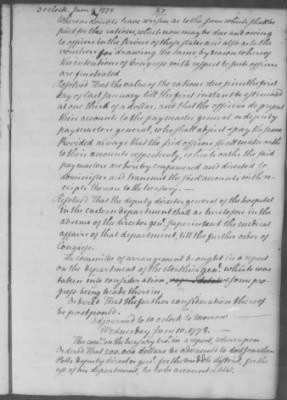 3 o'clock June 9 1778 57
Whereas doubts have arisen as to the sum which shall be
paid for the rations, which now may be due and owing
to officers in the service of these states and also as to the
for drawing the same by reason whereof
the intentions of Congress with respect to such officers
are frustrated
Resolved That the value of the rations due since the first
day of last January till the first instant be estimated
at one third of a dollar, and that the officers do present
their accounts to the paymaster general or deputy
paymasters general, who shall adjust & pay the same
Provided always that the said officers shall make oath
to their accounts respectively, which oath the said
paymasters are hereby empowered and directed to
administer and transmit the said accounts with re-
ceipts thereon to the treasury. —
Resolved That the deputy director general of the hospital
in the eastern department shall as heretofore in the
absence of the director genl. superintend the medical
affairs of that department, till the farther order of
Congress.
The committee of arrangement brought in a report
on the department of the clothier genl. which was
taken into consideration, some pro-
gress being made therein
Ordered That the farther consideration thereof
be postponed.
Adjourned to 10 o'clock to morrow
Wednesday June 10. 1778. —
The comee. on the treasury bro't in a report, whereupon
Ordered That 200,000 dollars be advanced to doct Jonathan
Potts deputy director genl. for the middle district, for the
use of his department, he to be accountable.